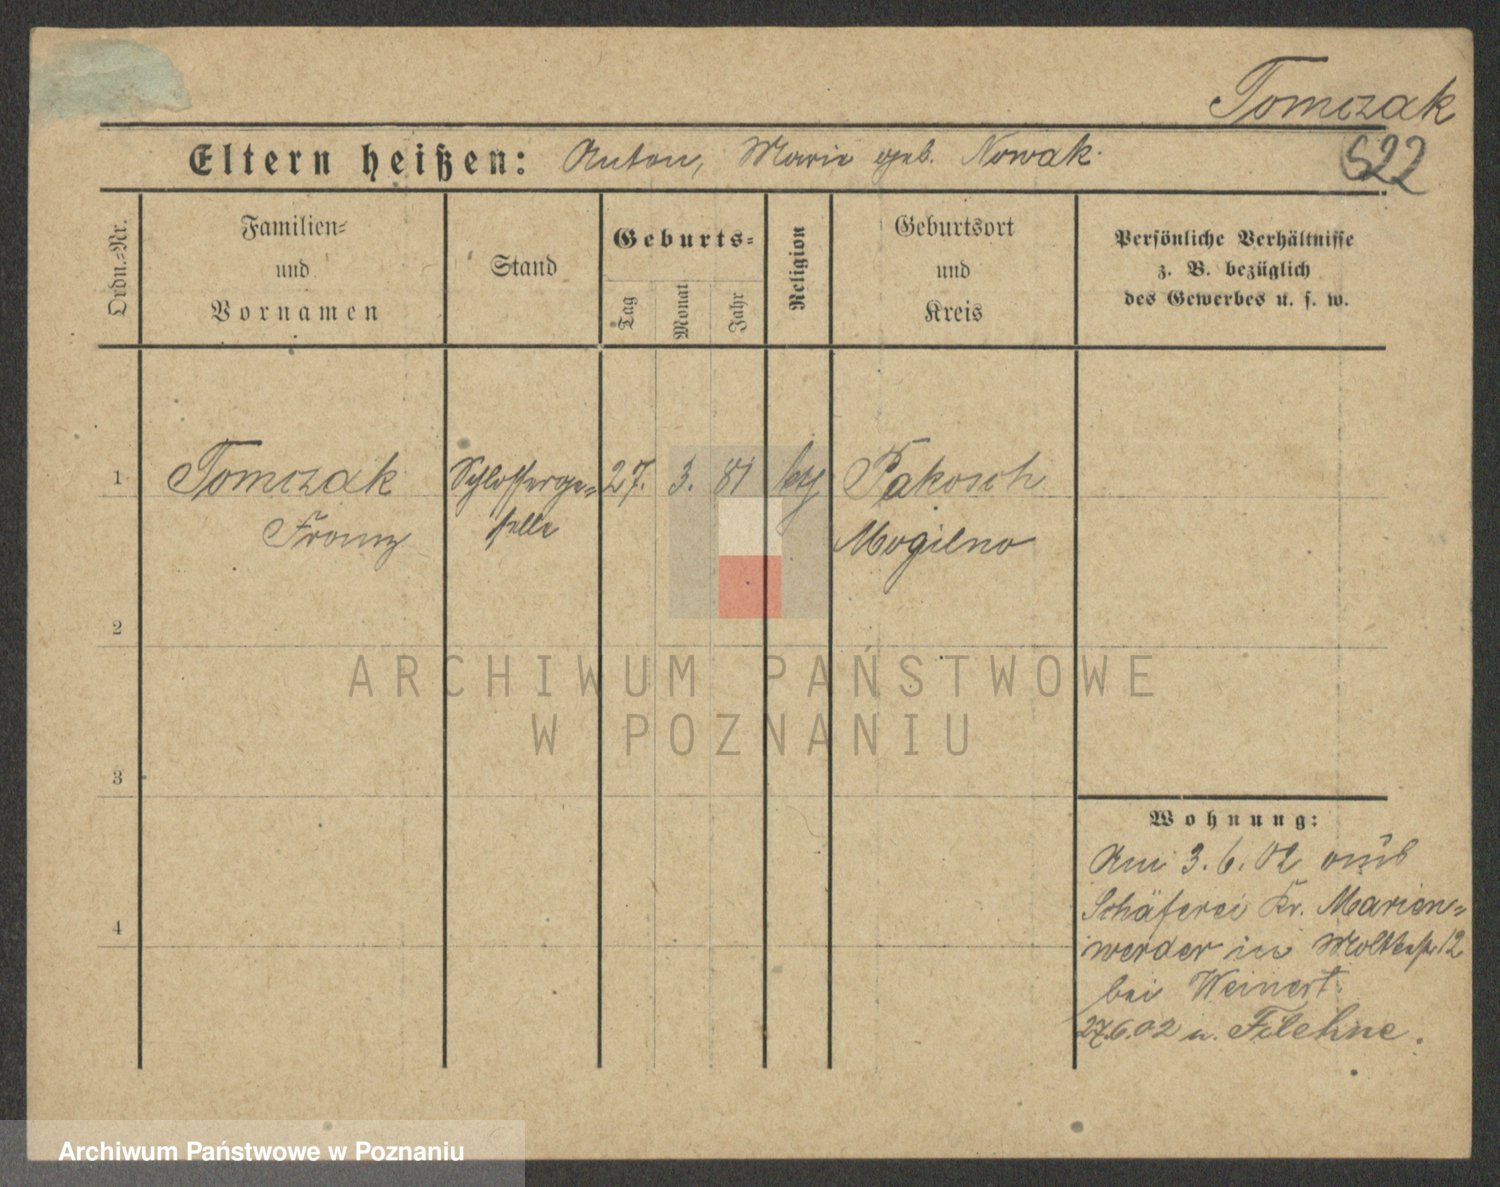 Tomczak
522
Eltern heißen: Anton, Marie geb. Nowak.
Ordn.=Nr.
Familien=
und
Vornamen
Stand
Geburts=
Tag
Monat
Jahr
Religion
Geburtsort
und
Kreis
Persönliche Verhältnisse
z. B. bezüglich
des Gewerbes u. s. w.
1 Tomczak Schlosserge= 27. 3. 81 kth Pakosch
Franz selle Mogilno
2
ARCHIWUM PAŃSTWOWE
W POZNANIU
3
Wohnung:
Am 3.6.02 aus
Schäferei Kr. Marien=
4
werder in Moltkestr. 12
bei Weinert.
27.6.02 n. Filehne.
Archiwum Państwowe w Poznaniu